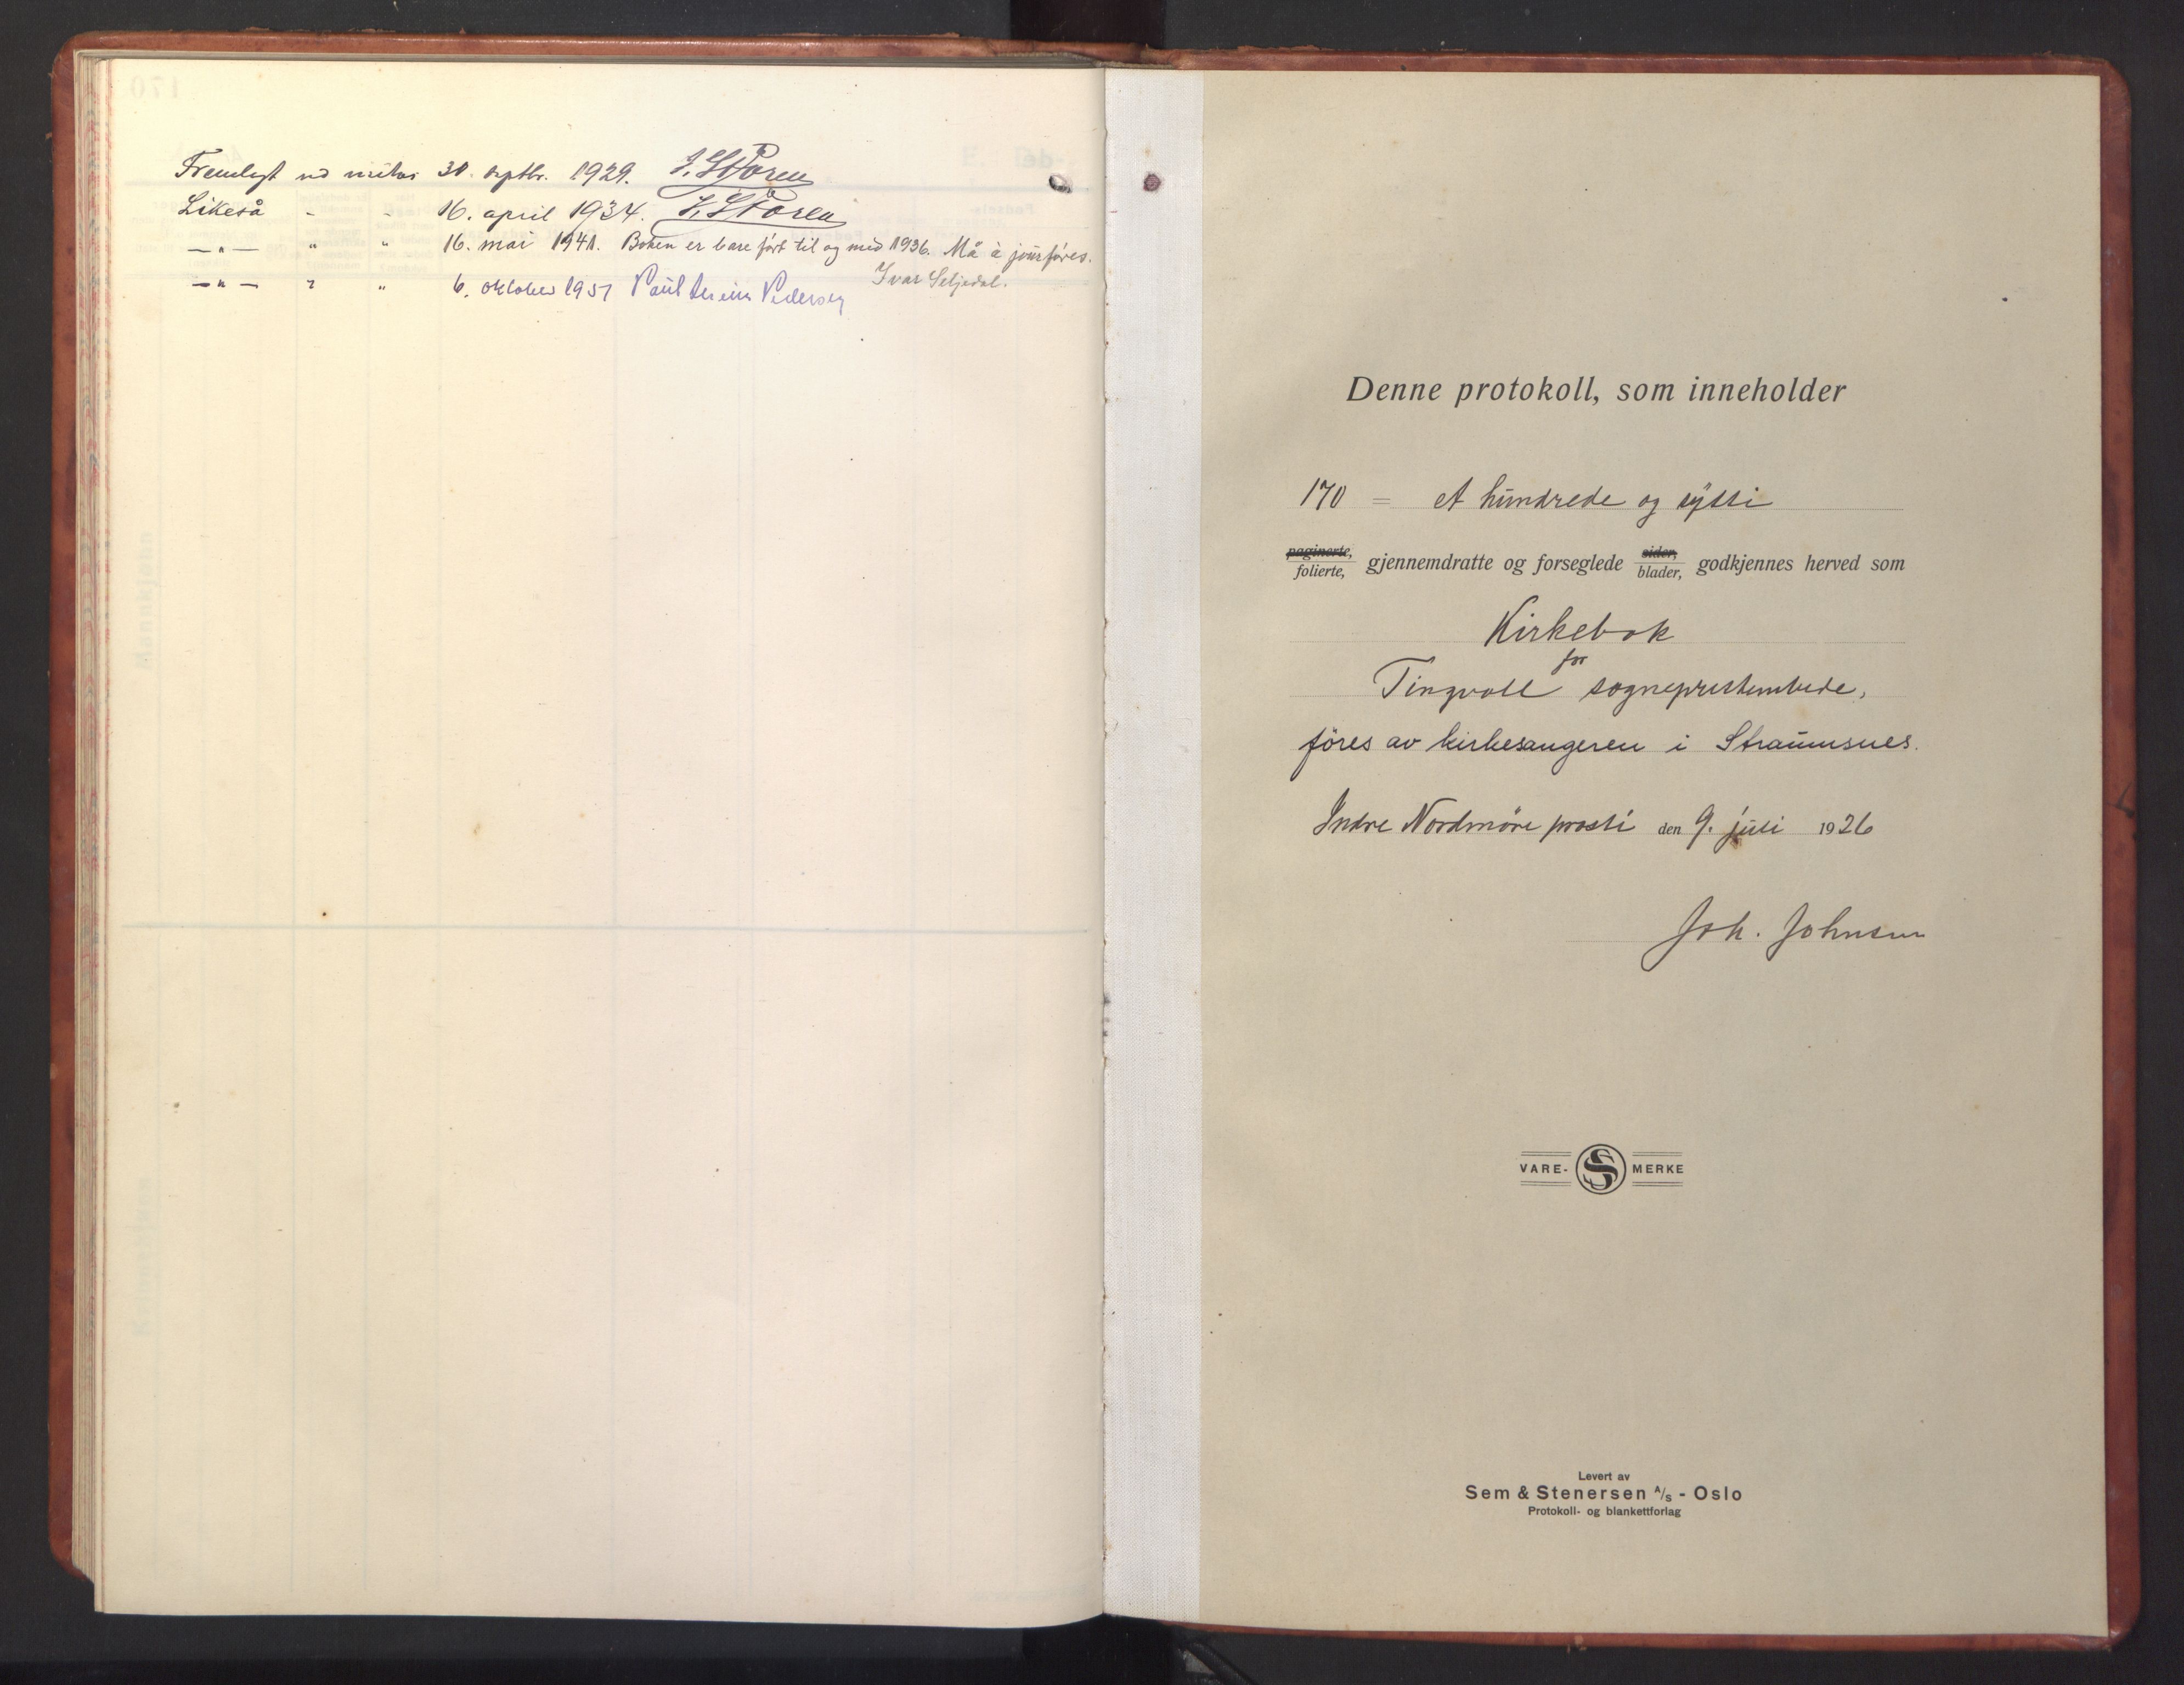 Fremlagt ved visitas 30. septbr. 1929. J. Støren
Likeså - - 16. april 1934. J. Støren
—"— " " 16. mai 1941. Boken er bare ført til og med 1936. Må à jourføres.
Ivar Seljedal.
—"— " " 6. oktober 1951 Pedersen
Denne protokoll, som inneholder
170 = et hundrede og sytti
paginerte, folierte, gjennemdratte og forseglede sider, blader, godkjennes herved som
Kirkebok
for
Tingvoll sogneprestembede,
föres av kirkesangeren i Straumsnes.
Indre Nordmöre prosti den 9. juli 1926
Joh. Johnsen
VARE- S MERKE
Levert av
Sem & Stenersen A/S - Oslo
Protokoll- og blankettforlag